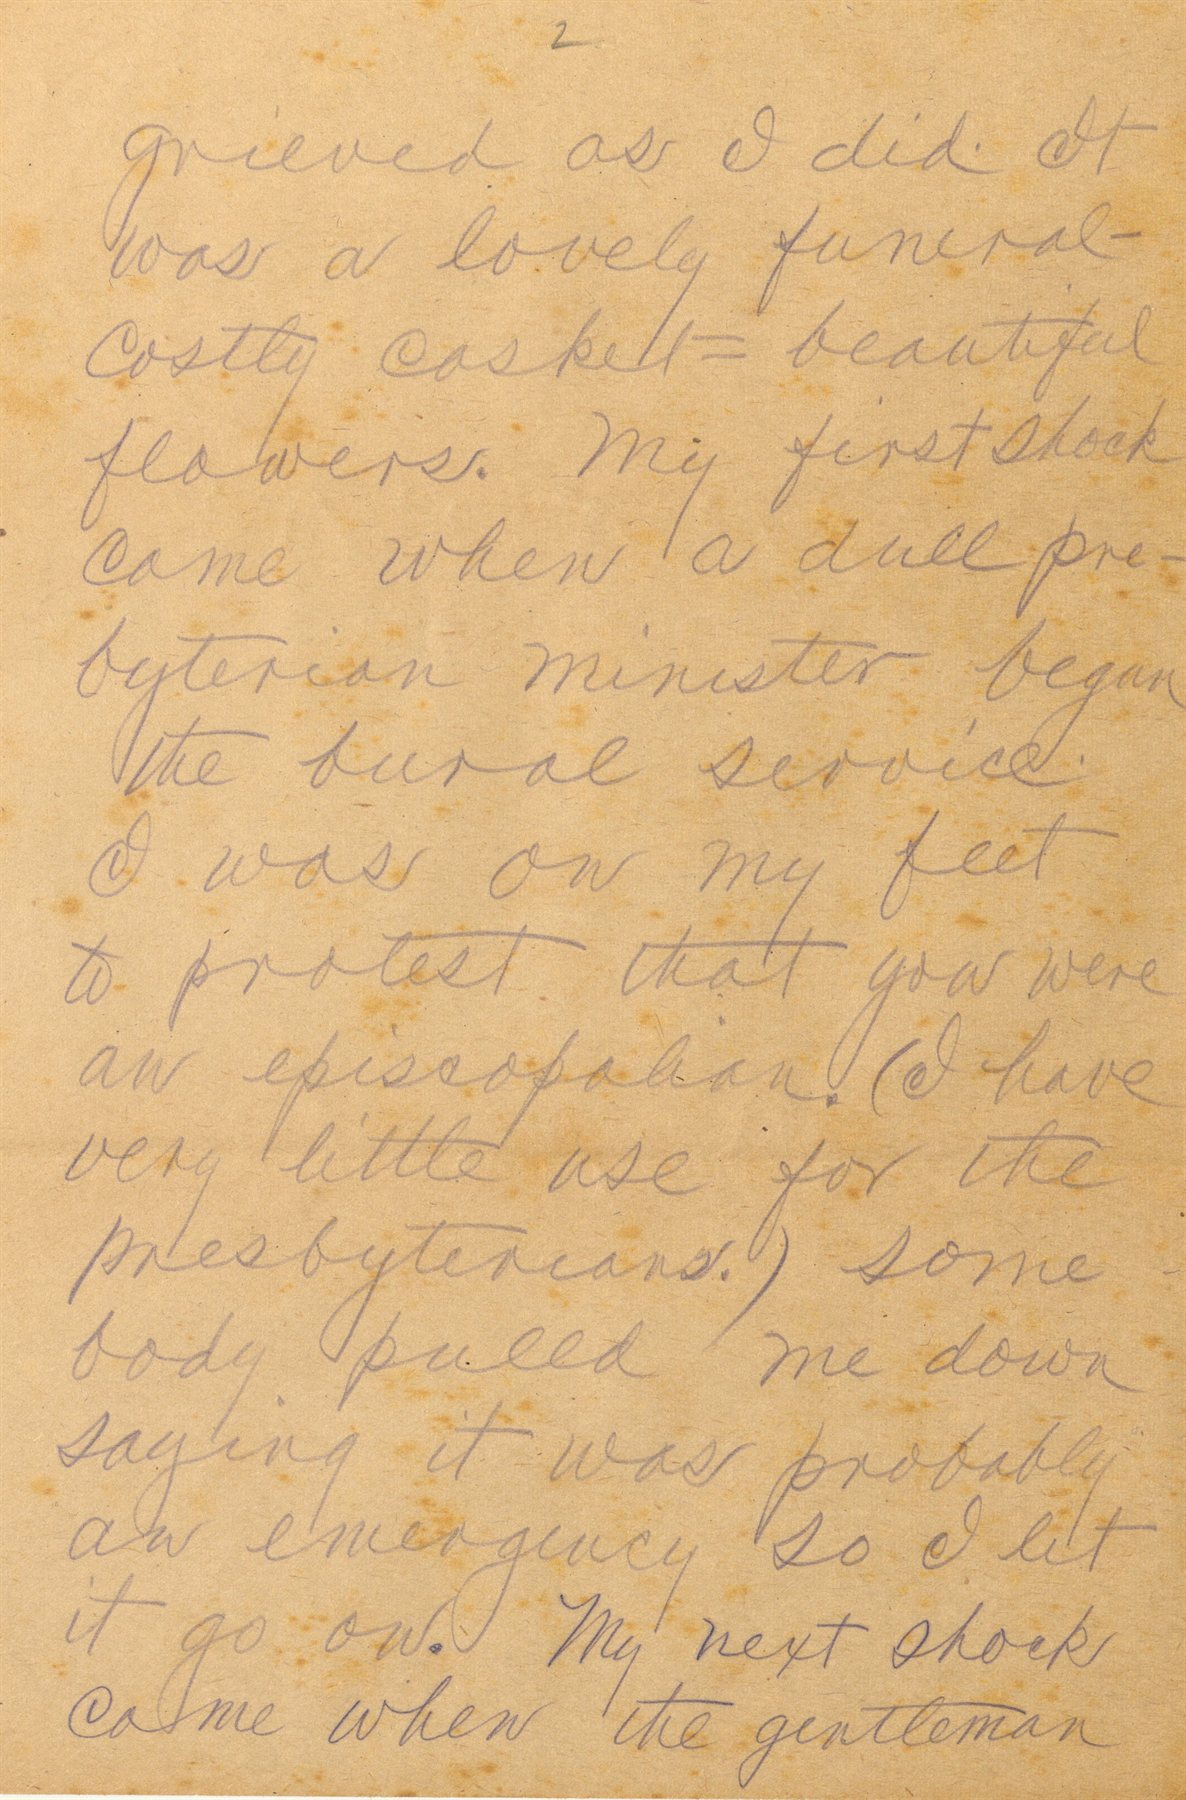 2
grieved as I did. It
was a lovely funeral-
costly casket= beautiful
flowers. My first shock
came when a dull pre-
byterian minister began
the bural service.
I was on my feet
to protest that you were
an episcopalian. (I have
very little use for the
presbyterians.) some
body pulled me down
saying it was probably
an emergency so I let
it go on. My next shock
came when the gentleman